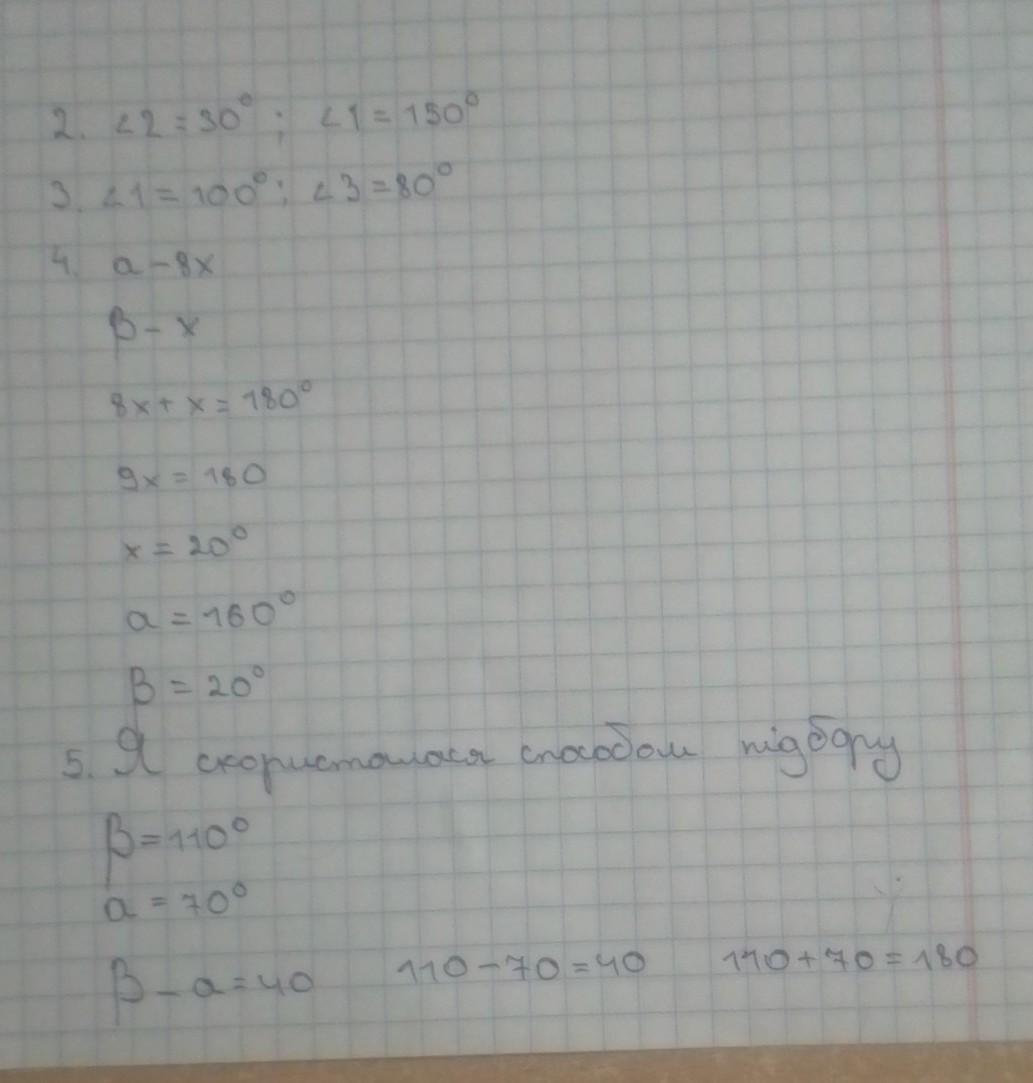 2. ∠2 = 30°; ∠1 = 150°
3. ∠1 = 100°; ∠3 = 80°
4. a - 8x
β - x
8x + x = 180°
9x = 180
x = 20°
a = 160°
β = 20°
5. Я скористалася способом підбору
β = 110°
a = 70°
β - a = 40 110 - 70 = 40 110 + 70 = 180